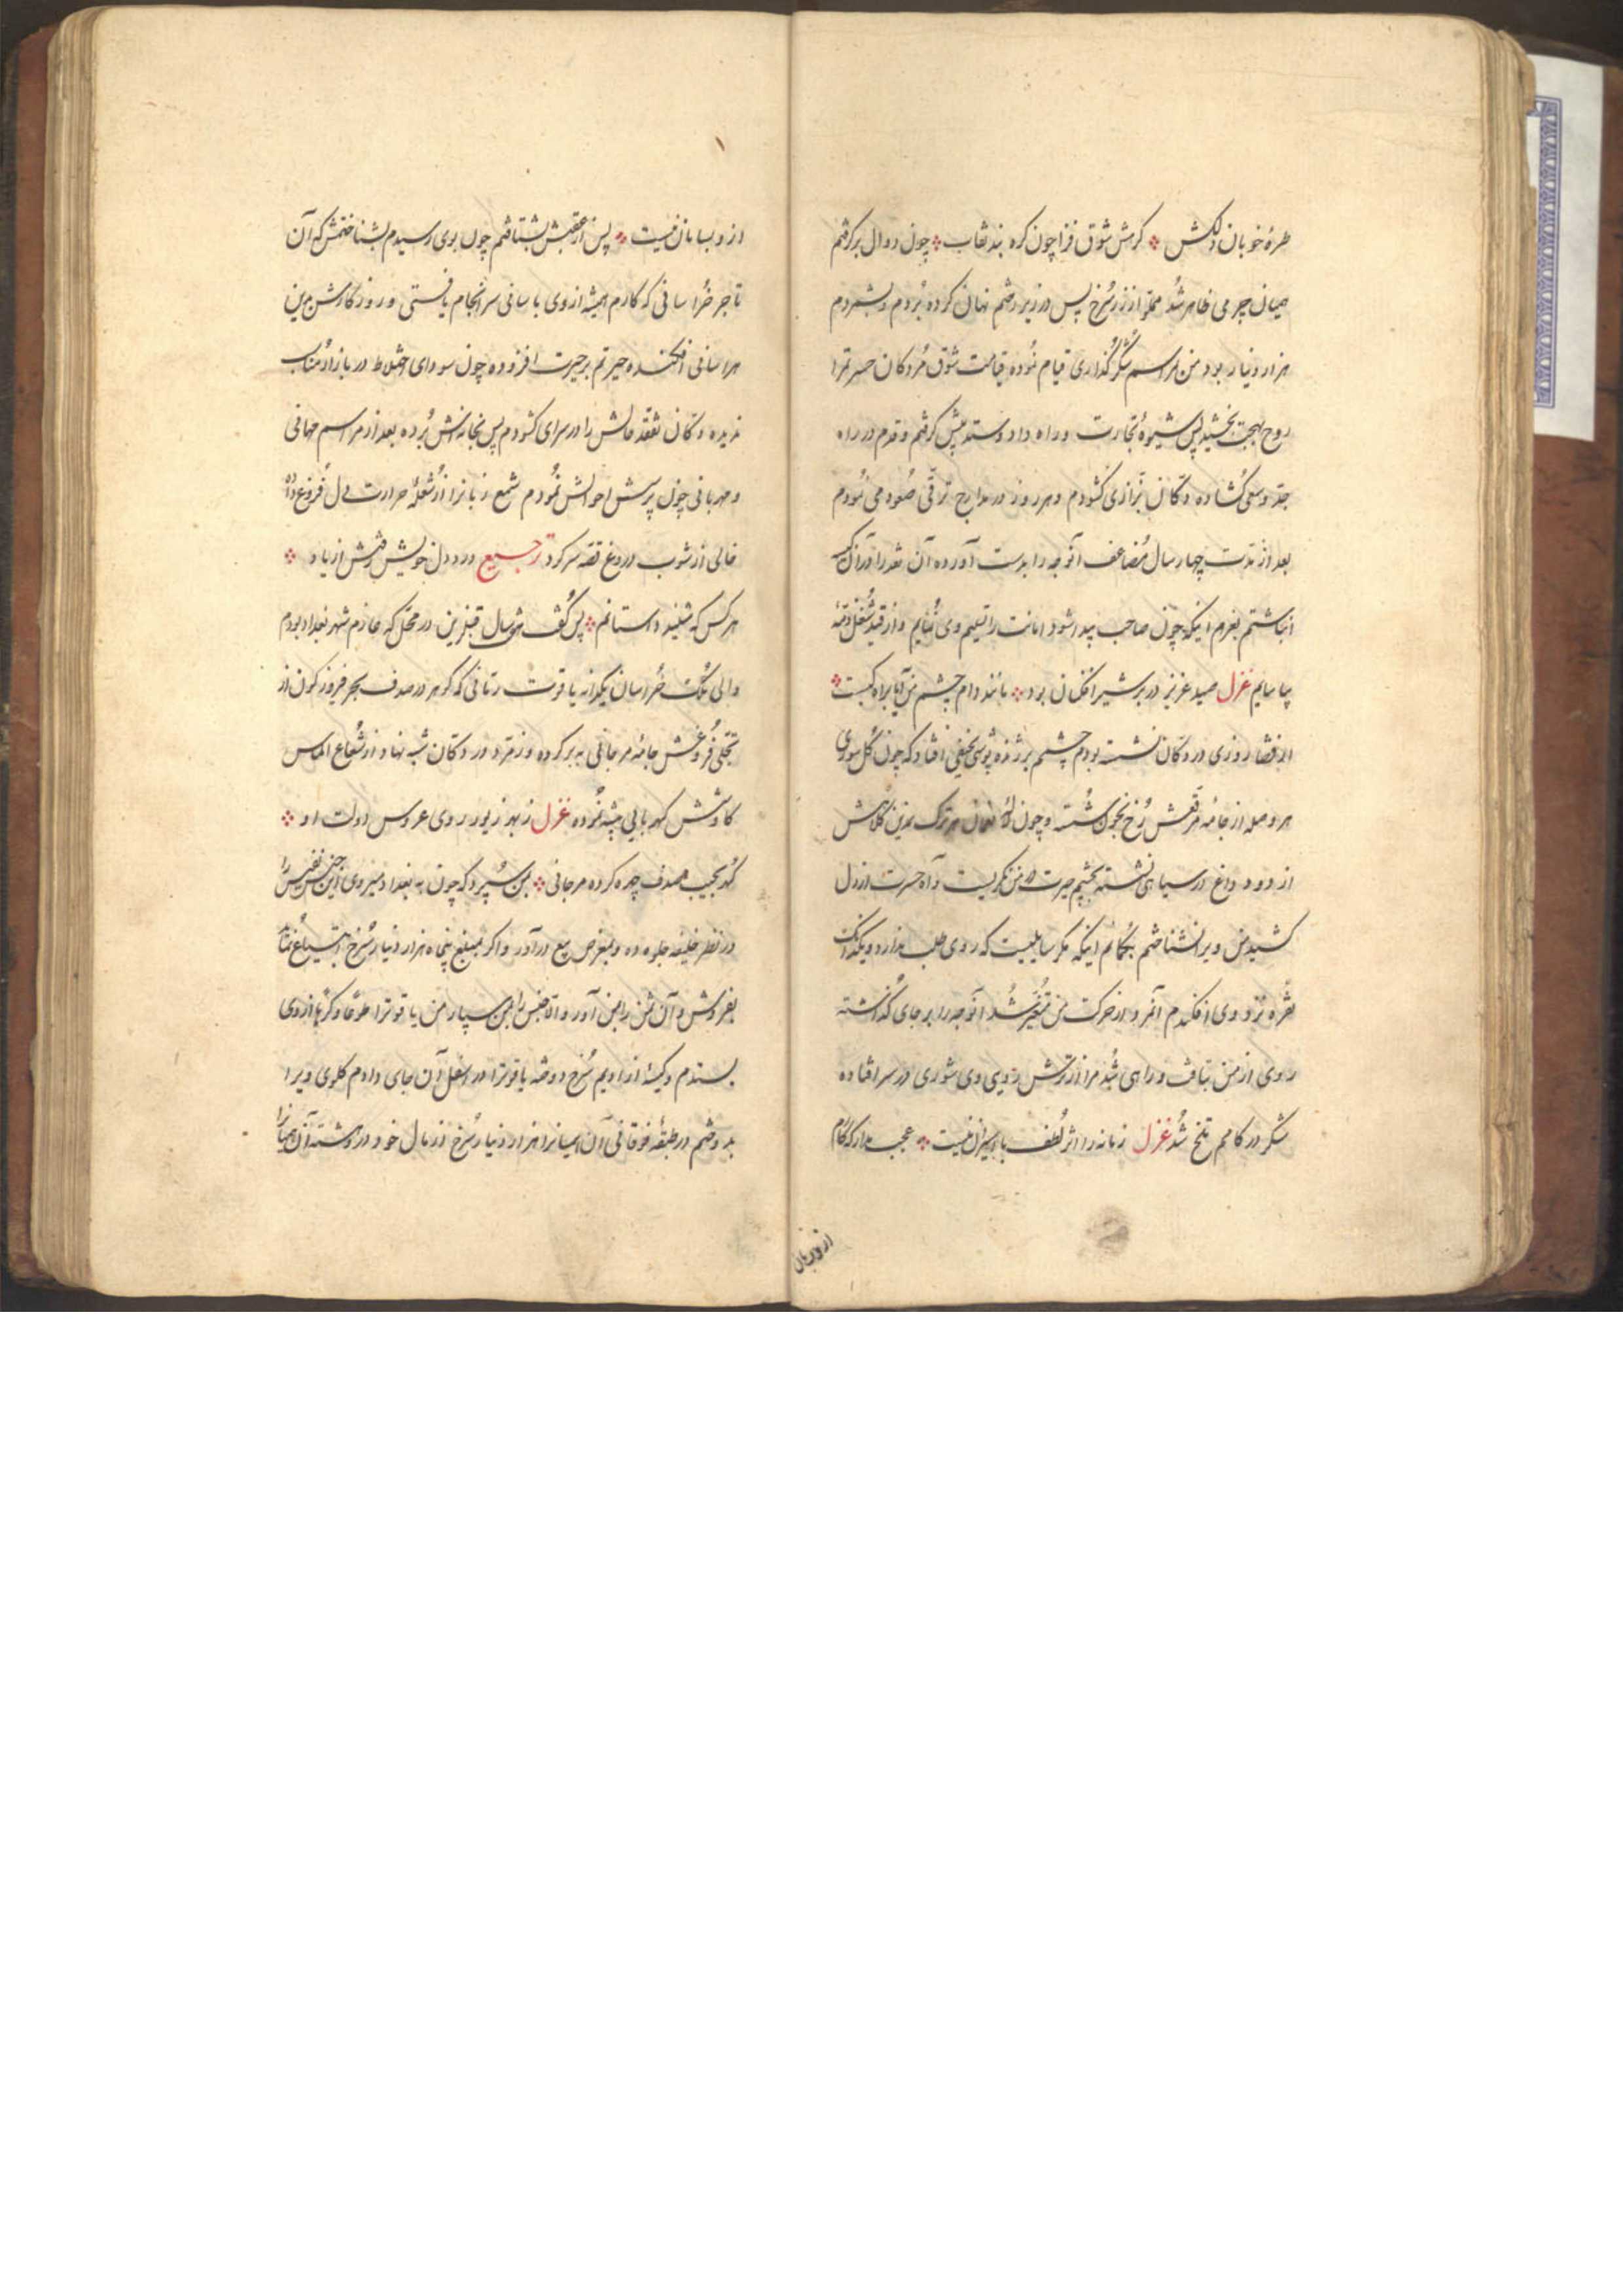 طرهٔ خوبان دلکش ⁘ گرهش شوق فزا چون گره بند نقاب ⁘ چون دوال برگرفتم
همیان چرمی ظاهر شد مملو از زر سُرخ پس در زیر رختم نهان کرده بُردم و بشمردم
هزار دینار بود من مراسم شکرگُذاری قیام نُموده قیامت شوق مُردکان حسرتمرا
روح بهجت بخشید پس شیوهٔ تجارت و راه داد و ستد پیش گرفتم و قدم در راه
جدّ و سعی گشاده دکّان بزّازی کشودم و هر روز در مدارج ترقّی صُعود می نُمودم
بعد از مدّت چهار سال مُضاعف آنوجه را بدست آورده آن نقد را در آن کیسه
انباشتم بعزم اینکه چون صاحب پیدا شود امانت را تسلیم وی نُمایم و از قید شُغل ذمّه
بیاسایم غزل صید عزیز در بر شیرافکنان بود ⁘ مانند دام چشم من آیا براه کیست ⁘
از قضا روزی در دکّان نشسته بودم چشمم بر ژنده پوشی نحیفی افتاد که چون گل سوری
هر وصله از جامهٔ مرقّعش رُخ بخون شُسته و چون لالهٔ نعمان هر ترک نمدین کلاهش
از دود داغ در سیاهی نشسته بچشم حیرت در من نگریست و آه حسرت از دل
کشید من ویرا نشناختم بگمانم اینکه مگر سایلیست که روی طلب ندارد و یکدانک
نقره نزد وی افکندم آنمرد از حرکت من مُتغیّر شُد آنوجه را بر جای گُذاشته
روی از من بتافت و راهی شُد مرا از ترش رویی وی شوری در سر افتاده
شکر در کامم تلخ شُد غزل زمانه را اثر لُطف با اسیران نیست ⁘ عجب مدار که کام
از و بسامان نیست
از و بسامان نیست ⁘ پس از عقبش بشتافتم چون بوی رسیدم بشناختمش که آن
تاجر خُراسانی که کارم همیشه از وی باسانی سرانجام یافتی و روزگارش بدین
هراسانی افکنده حیرتم بر حیرت افزوده چون سودای اختلاط در بازار مناسب
ندیده دکّان تفقّد حالش را در سرای کشودم پس بخانه اش بُرده بعد از مراسم مهمانی
و مهربانی چون پرسش احوالش نُمودم شمع زبانرا از شُعلهٔ حرارت دل فُروغ داده
خالی از شوب دروغ قصّه سر کرد ترجیع درد دل خویش رفتش از یاد ⁘
هر کس که شنید داستانم ⁘ پس گُفت شش سال قبل ازین در محلّی که عازم شهر بغداد بودم
والی مُلک خُراسان یکدانه یاقوت رمّانی که گوهر در صدف بحر فیروزه گون از
تجلّی فُروغش جامهٔ مرجانی به بر کرده و زمرّد در دکّان شبه نهاد از شُعاع الماس
کاوشش کهربایی پیشه نُموده غزل ز بهر زیور روی عروس دولت او ⁘
گهر بجیب صدف چهره کرده مرجانی ⁘ بمن سُپرد که چون به بغداد میروی این جنس نفیس را
در نظر خلیفه جلوه ده و بمعرض بیع درآور و اگر بمبلغ پنجاه هزار دینار سُرخ ابتیاع نماید
بفروش و آن ثمن را بمن آور و الّا جنس را بمن سپار من یاقوترا طوعًا و کرهًا از وی
بستدم و کیسهٔ از ادیم سُرخ دوخته یاقوترا در اسفل آن جای دادم گلوی ویرا
بدوختم در طبقهٔ فوقانی آن همیانرا هزار دینار سُرخ از مال خود در گذاشته آن همیانرا